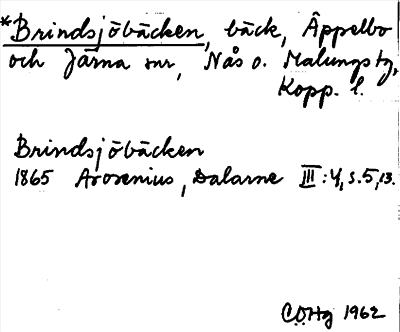 *Brindsjöbäcken, bäck, Äppelbo
och Järna snr, Nås o. Malungs tg,
Kopp. l.
Brindsjöbäcken
1865 Arosenius, Dalarne III:4, s. 5, 13.
1962